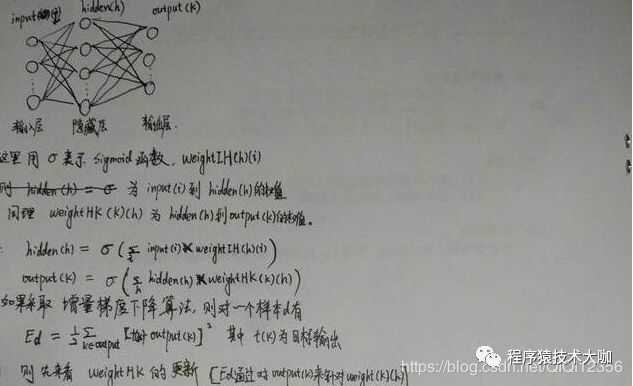 input(i) hidden(h) output(k)
输入层 隐藏层 输出层.
这里用 σ 表示 sigmoid 函数, weightIH(h)(i)
则 hidden(h) = σ 为 input(i) 到 hidden(h)的权值
同理 weightHK(k)(h) 为 hidden(h)到output(k)的权值。
hidden(h) = σ(∑i input(i)×weightIH(h)(i))
output(k) = σ(∑h hidden(h)×weightHK(k)(h))
如果采取 增量梯度下降算法, 则对一个样本d有
Ed = ½ ∑k∈output [t(k)-output(k)]² 其中 t(k)为目标输出
则先来看 weightHK 的更新 [Ed通过对output(k)来针对weight(k)(h)]
程序猿技术大咖
https://blog.csdn.net/QiQi12356